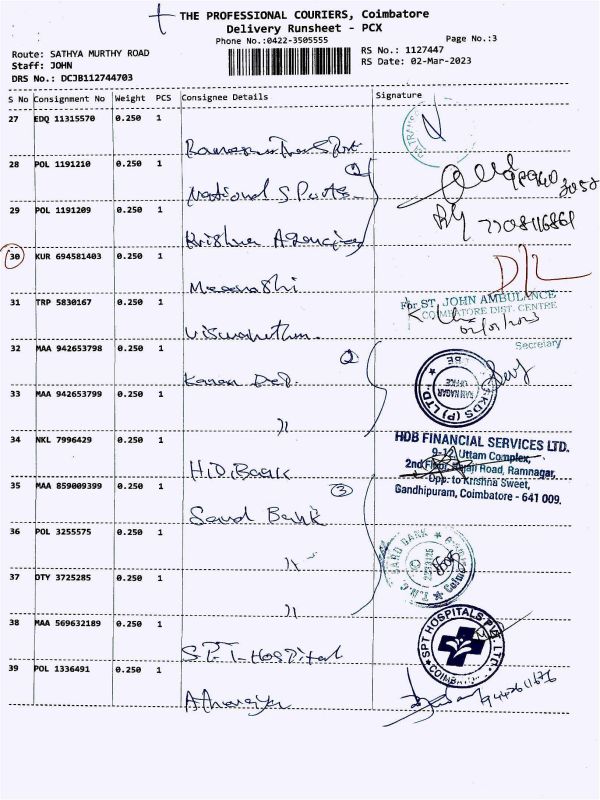 THE PROFESSIONAL COURIERS, Coimbatore
Delivery Runsheet - PCX
Phone No.:0422-3505555
Page No.:3
Route: SATHYA MURTHY ROAD
RS No.: 1127447
Staff: JOHN
RS Date: 02-Mar-2023
DRS No.: DCJB112744703
S No Consignment No Weight PCS Consignee Details Signature
27 EDQ 11315570 0.250 1
28 POL 1191210 0.250 1
National Sports
29 POL 1191209 0.250 1
7708116861
Krishna Agencies
30 KUR 694581403 0.250 1
D/L
Meenakshi
31 TRP 5830167 0.250 1
For ST. JOHN AMBULANCE
COIMBATORE DIST. CENTRE
Viswanathan
Secretary
32 MAA 942653798 0.250 1
2
KDS (P) LTD.
RAM NAGAR
OFFICE
33 MAA 942653799 0.250 1
〃
34 NKL 7996429 0.250 1
HDB FINANCIAL SERVICES LTD.
9-12, Uttam Complex,
2nd Floor, Rajaji Road, Ramnagar,
Opp. to Krishna Sweet,
Gandhipuram, Coimbatore - 641 009.
35 MAA 859009399 0.250 1
3
Bank
36 POL 3255575 0.250 1
〃
37 OTY 3725285 0.250 1
〃
38 MAA 569632189 0.250 1
SPT HOSPITALS PVT. LTD.
COIMBATORE
S.P.T. Hospital
39 POL 1336491 0.250 1